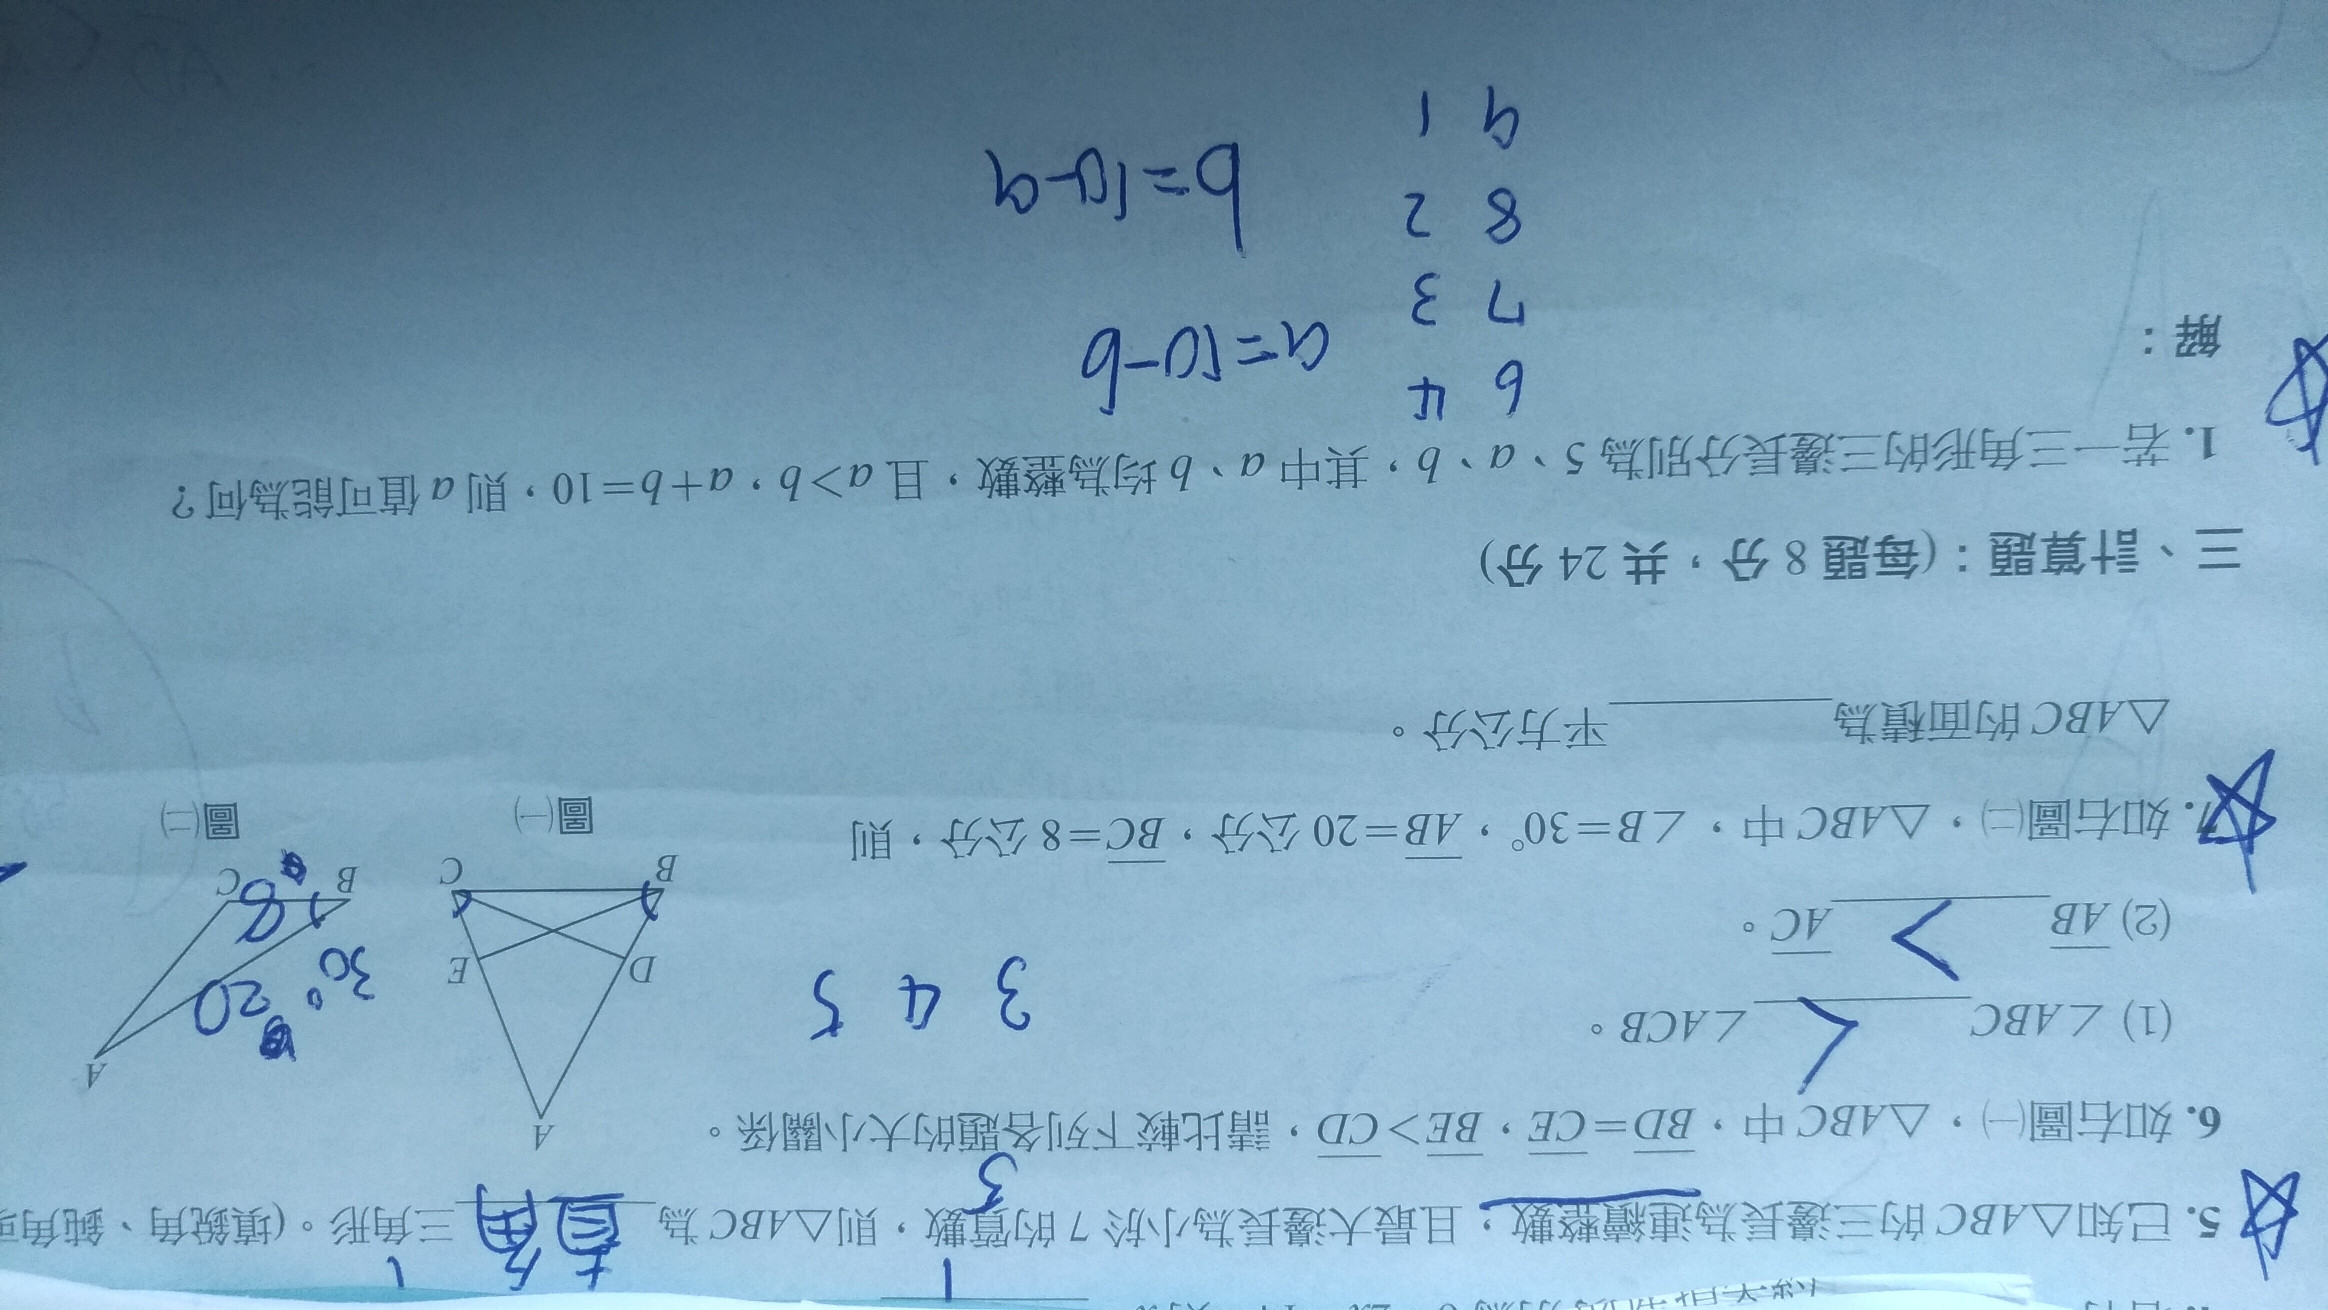 5. 已知△ABC的三邊長為連續整數，且最大邊長為小於7的質數，則△ABC為 直角 三角形。(填銳角、鈍角或
5
6. 如右圖㈠，△ABC中，BD=CE，BE>CD，請比較下列各題的大小關係。
(1) ∠ABC < ∠ACB。
(2) AB > AC。
3 4 5
A
D E
B C
圖㈠
A
20
30°
8
B C
圖㈡
7. 如右圖㈡，△ABC中，∠B=30°，AB=20公分，BC=8公分，則
△ABC的面積為 平方公分。
三、計算題：(每題8分，共24分)
1. 若一三角形的三邊長分別為5、a、b，其中a、b均為整數，且a>b，a+b=10，則a值可能為何？
解：
6 4
7 3
8 2
9 1
a=10-b
b=10-a